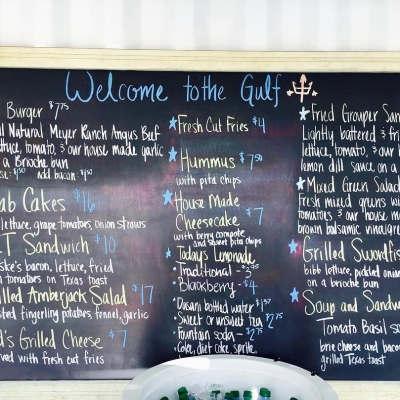 Welcome to the Gulf
Burger $7.75
Natural Meyer Ranch Angus Beef
lettuce, tomato, & our house made garlic
a Brioche bun
add bacon:
Cakes $16
lettuce, grape tomatoes, onion straws
T Sandwich $10
bacon, lettuce, fried
tomatoes on Texas toast
Amberjack Salad $17
fingerling potatoes, fennel, garlic
Grilled Cheese $7
with fresh cut fries
Fresh Cut Fries $4
Hummus $7.50
with pita chips
House Made
Cheesecake $7
with berry compote
and sweet pita chips
Today's Lemonade
-Traditional - 3.75
-Blackberry - $4
•Dasani bottled water $1.50
•Sweet or unsweet tea $2.75
•Fountain soda - $2.75
•Coke, diet coke, sprite,
Fried Grouper San
Lightly battered & fri
lettuce, tomato, & our h
lemon dill sauce on a
Mixed Green Salad
Fresh mixed greens wi
tomatoes & our house m
brown balsamic vinaigre
Grilled Swordfis
bibb lettuce, pickled onion
on a brioche bun
Soup and Sandwi
Tomato Basil so
brie cheese and bacon
grilled Texas toast